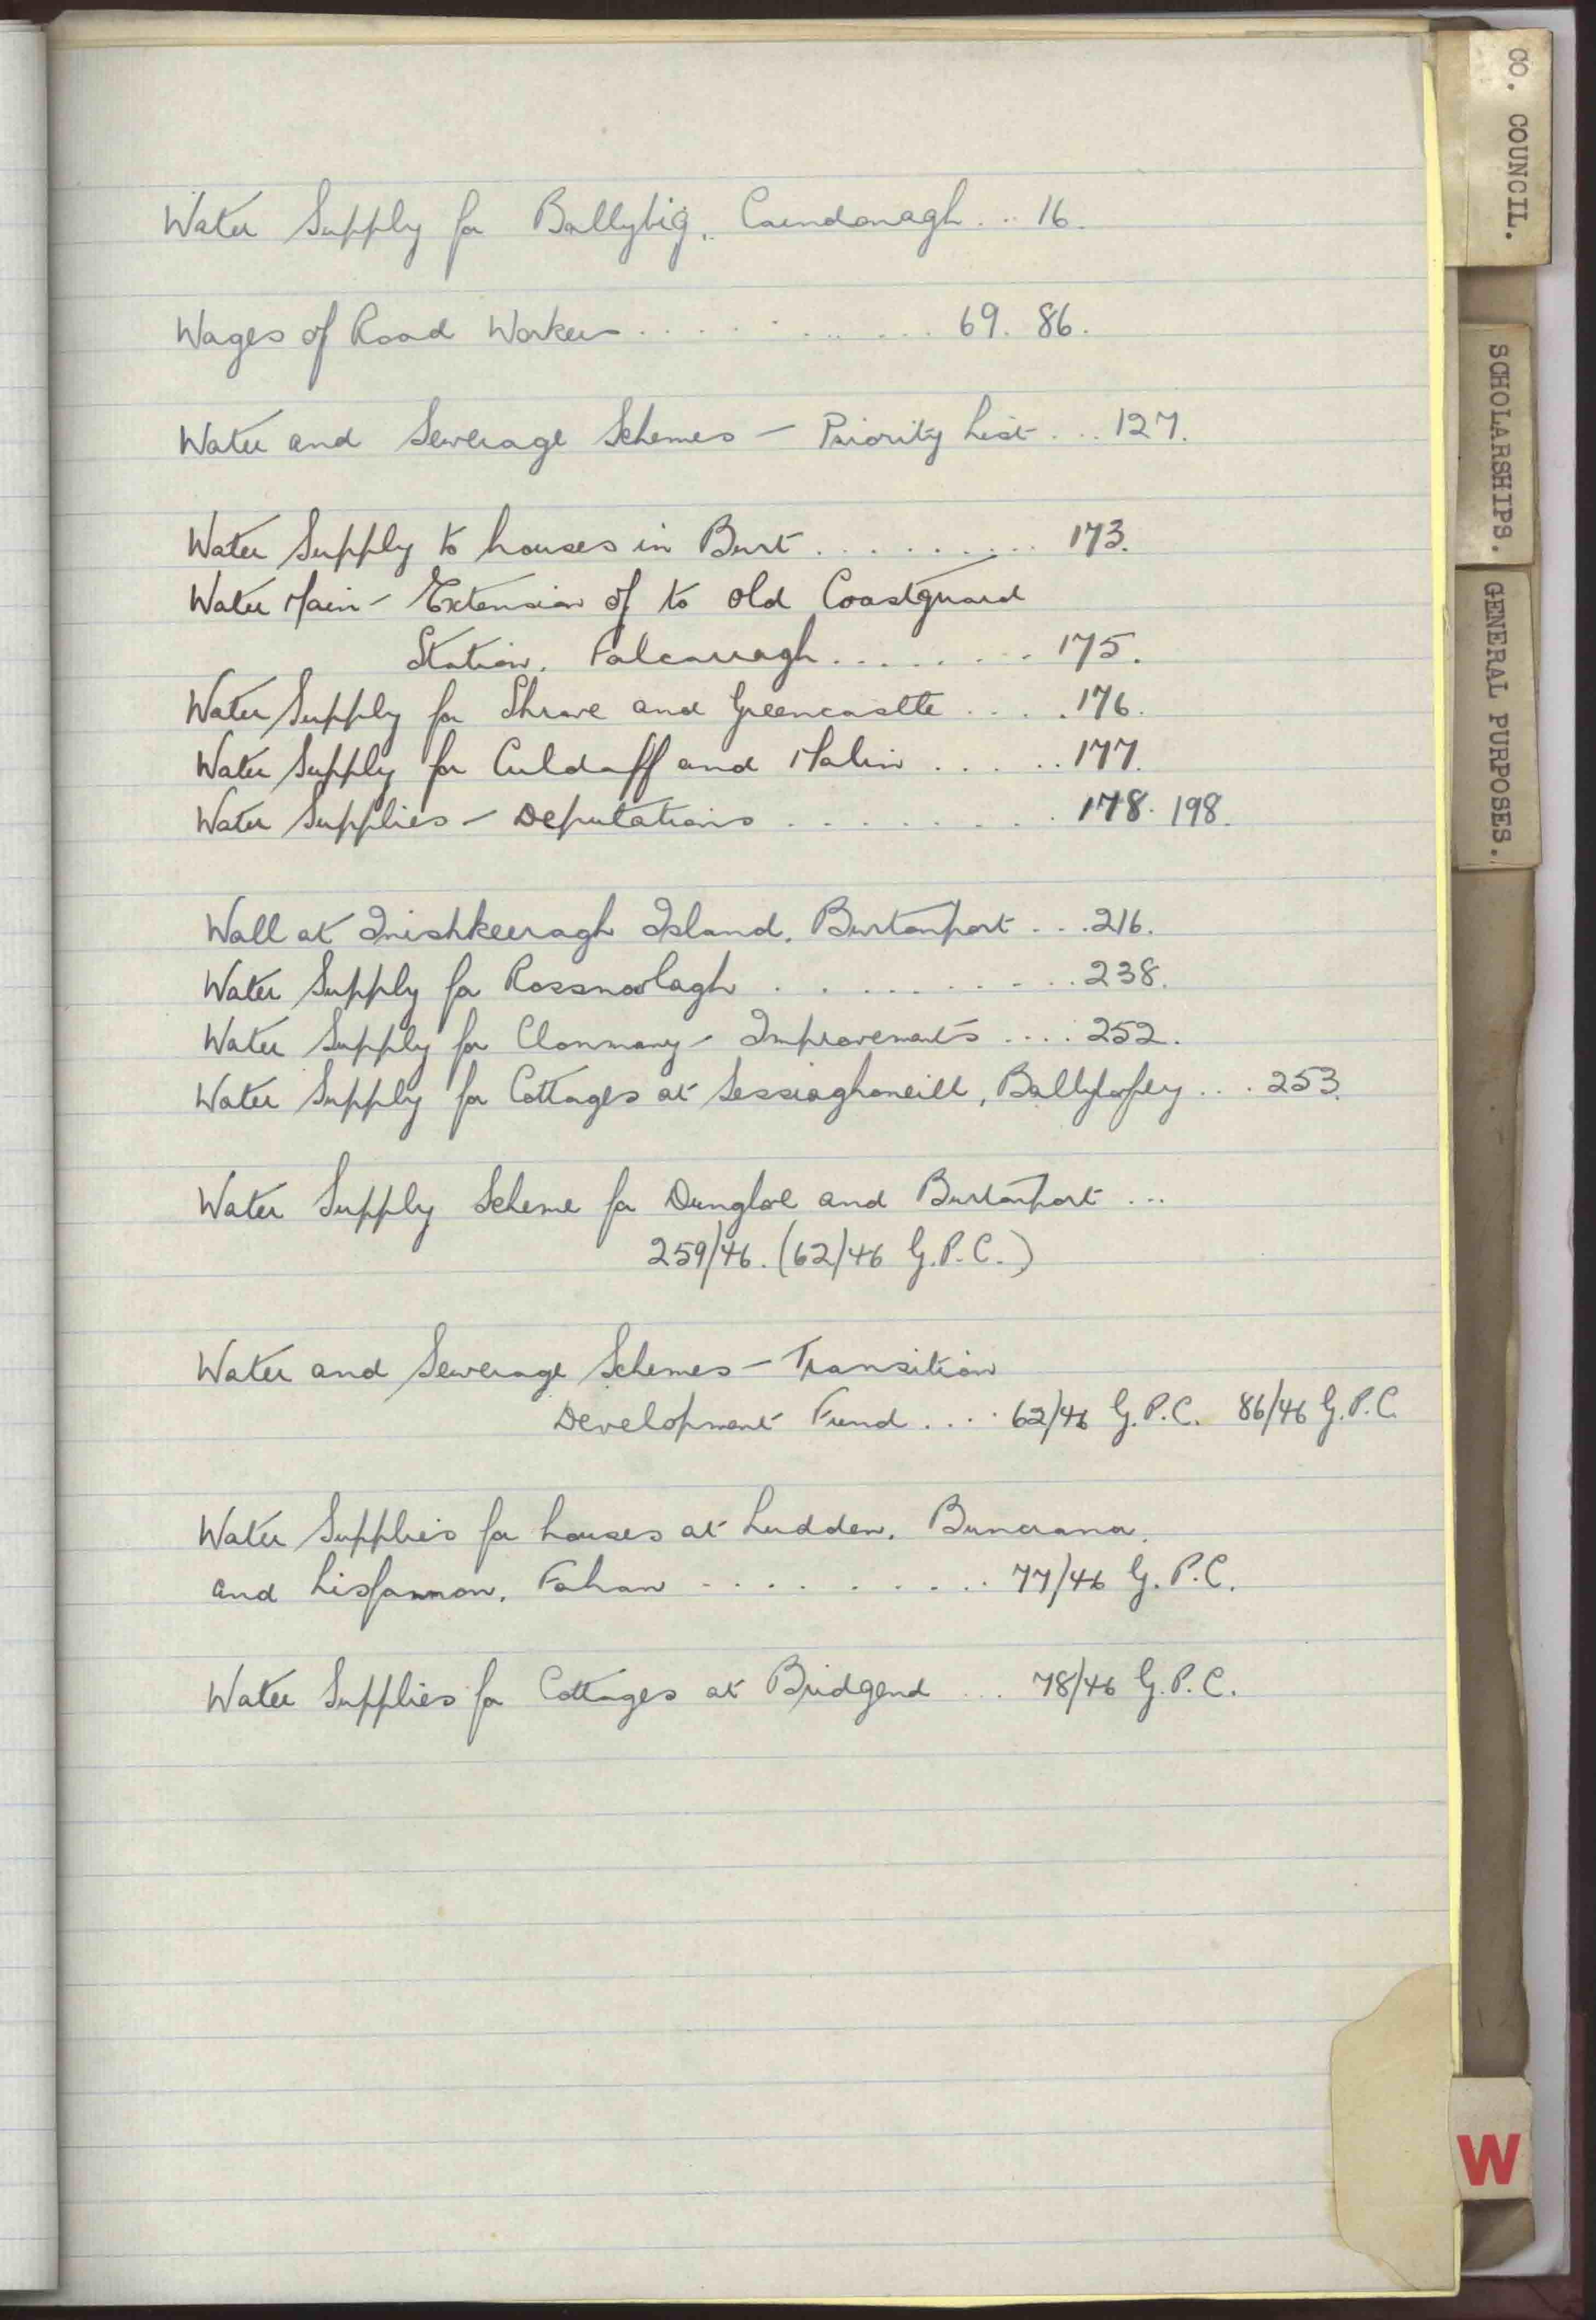 Water Supply for Ballylig, Carndonagh . . . 16.
Wages of Road Workers . . . . . . . . . . . . 69. 86.
Water and Sewerage Schemes – Priority List . . . 127.
Water Supply to houses in Burt . . . . . . . . . 173.
Water Main – Extension of to old Coastguard
Station, Falcarragh . . . . . . . . . 175.
Water Supply for Shrove and Greencastle . . . . 176.
Water Supply for Culdaff and Malin . . . . . . 177.
Water Supplies – Deputations . . . . . . . . . . 178. 198.
Wall at Inishkeeragh Island, Burtonport . . . 216.
Water Supply for Rossnowlagh . . . . . . . . . . 238.
Water Supply for Clonmany – Improvements . . . . 252.
Water Supply for Cottages at Sessiaghoneill, Ballybofey . . . 253.
Water Supply Scheme for Dungloe and Burtonport ...
259/46. (62/46 G.P.C.)
Water and Sewerage Schemes – Transition
Development Fund . . . . 62/46 G.P.C. 86/46 G.P.C.
Water Supplies for houses at Ludden, Buncrana,
and Lisfannon, Fahan . . . . . . . . . . 77/46 G.P.C.
Water Supplies for Cottages at Bridgend ... 78/46 G.P.C.
CO. COUNCIL.
SCHOLARSHIPS.
GENERAL PURPOSES.
W